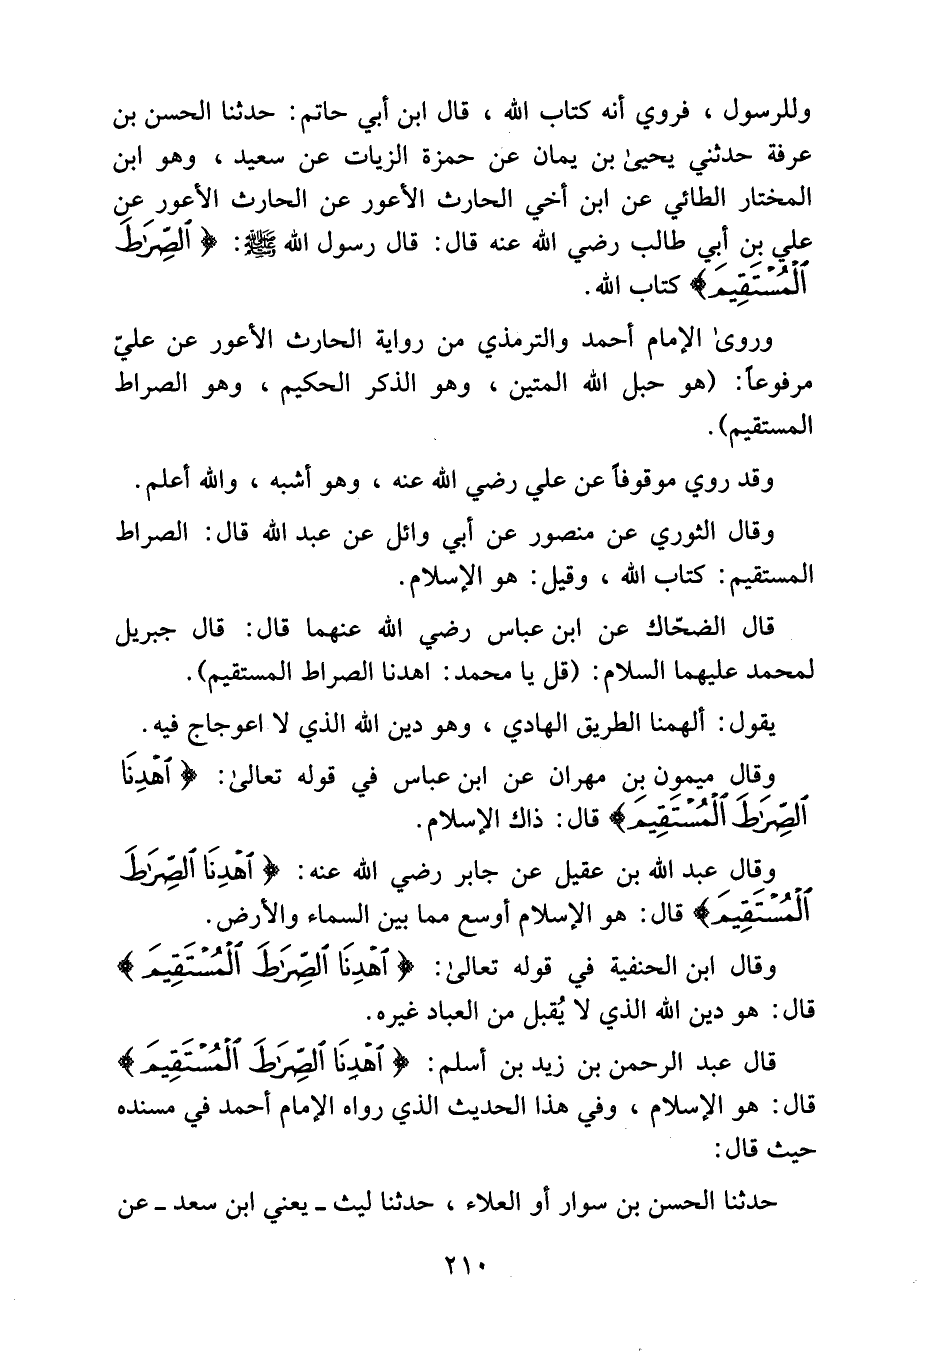 وللرسول ، فروي أنه كتاب الله ، قال ابن أبي حاتم: حدثنا الحسن بن
عرفة حدثني يحيىٰ بن يمان عن حمزة الزيات عن سعيد ، وهو ابن
المختار الطائي عن ابن أخي الحارث الأعور عن الحارث الأعور عن
علي بن أبي طالب رضي الله عنه قال: قال رسول الله ﷺ: ﴿ ٱلصِّرَٰطَ
ٱلْمُسْتَقِيمَ﴾ كتاب الله.
وروىٰ الإمام أحمد والترمذي من رواية الحارث الأعور عن عليّ
مرفوعاً: (هو حبل الله المتين ، وهو الذكر الحكيم ، وهو الصراط
المستقيم).
وقد روي موقوفاً عن علي رضي الله عنه ، وهو أشبه ، والله أعلم.
وقال الثوري عن منصور عن أبي وائل عن عبد الله قال: الصراط
المستقيم: كتاب الله ، وقيل: هو الإسلام.
قال الضحّاك عن ابن عباس رضي الله عنهما قال: قال جبريل
لمحمد عليهما السلام: (قل يا محمد: اهدنا الصراط المستقيم).
يقول: ألهمنا الطريق الهادي ، وهو دين الله الذي لا اعوجاج فيه.
وقال ميمون بن مهران عن ابن عباس في قوله تعالىٰ: ﴿ ٱهْدِنَا
ٱلصِّرَٰطَ ٱلْمُسْتَقِيمَ﴾ قال: ذاك الإسلام.
وقال عبد الله بن عقيل عن جابر رضي الله عنه: ﴿ ٱهْدِنَا ٱلصِّرَٰطَ
ٱلْمُسْتَقِيمَ﴾ قال: هو الإسلام أوسع مما بين السماء والأرض.
وقال ابن الحنفية في قوله تعالىٰ: ﴿ ٱهْدِنَا ٱلصِّرَٰطَ ٱلْمُسْتَقِيمَ ﴾
قال: هو دين الله الذي لا يُقبل من العباد غيره.
قال عبد الرحمن بن زيد بن أسلم: ﴿ ٱهْدِنَا ٱلصِّرَٰطَ ٱلْمُسْتَقِيمَ ﴾
قال: هو الإسلام ، وفي هذا الحديث الذي رواه الإمام أحمد في مسنده
حيث قال:
حدثنا الحسن بن سوار أو العلاء ، حدثنا ليث ـ يعني ابن سعد ـ عن
٢١٠